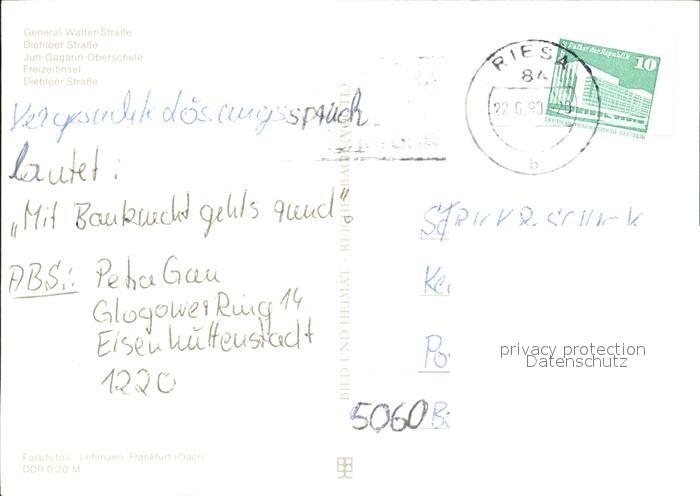 General-Walter-Straße
Diehloer Straße
Juri-Gagarin-Oberschule
Freizeitinsel
Diehloer Straße
RIESA
84
22.6.90-20
b
Palast der Republik
10
DEUTSCHE DEMOKRATISCHE REPUBLIK
Lösungsspruch
lautet:
„Mit Bauknecht gehts rund"
ABS.: Petra Gau
Glogower Ring 14
Eisenhüttenstadt
1220
BILD UND HEIMAT · REICHENBACH (VOGTL)
Ke
Po
5060 B
privacy protection
Datenschutz
Farbfotos: Lehmann, Frankfurt (Oder)
DDR 0,20 M